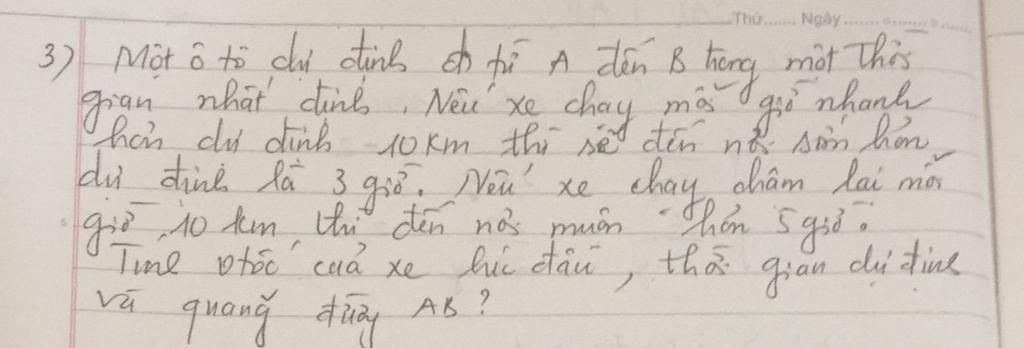 Thứ....... Ngày...................
3) Một ô tô dự định đi từ A đến B trong một thời
gian nhất định. Nếu xe chạy mỗi giờ nhanh
hơn dự định 10 km thì sẽ đến nơi sớm hơn
dự định là 3 giờ. Nếu xe chạy chậm lại mỗi
giờ 10 km thì đến nơi muộn hơn 5 giờ.
Tính vtốc của xe lúc đầu, thời gian dự định
và quãng đường AB?